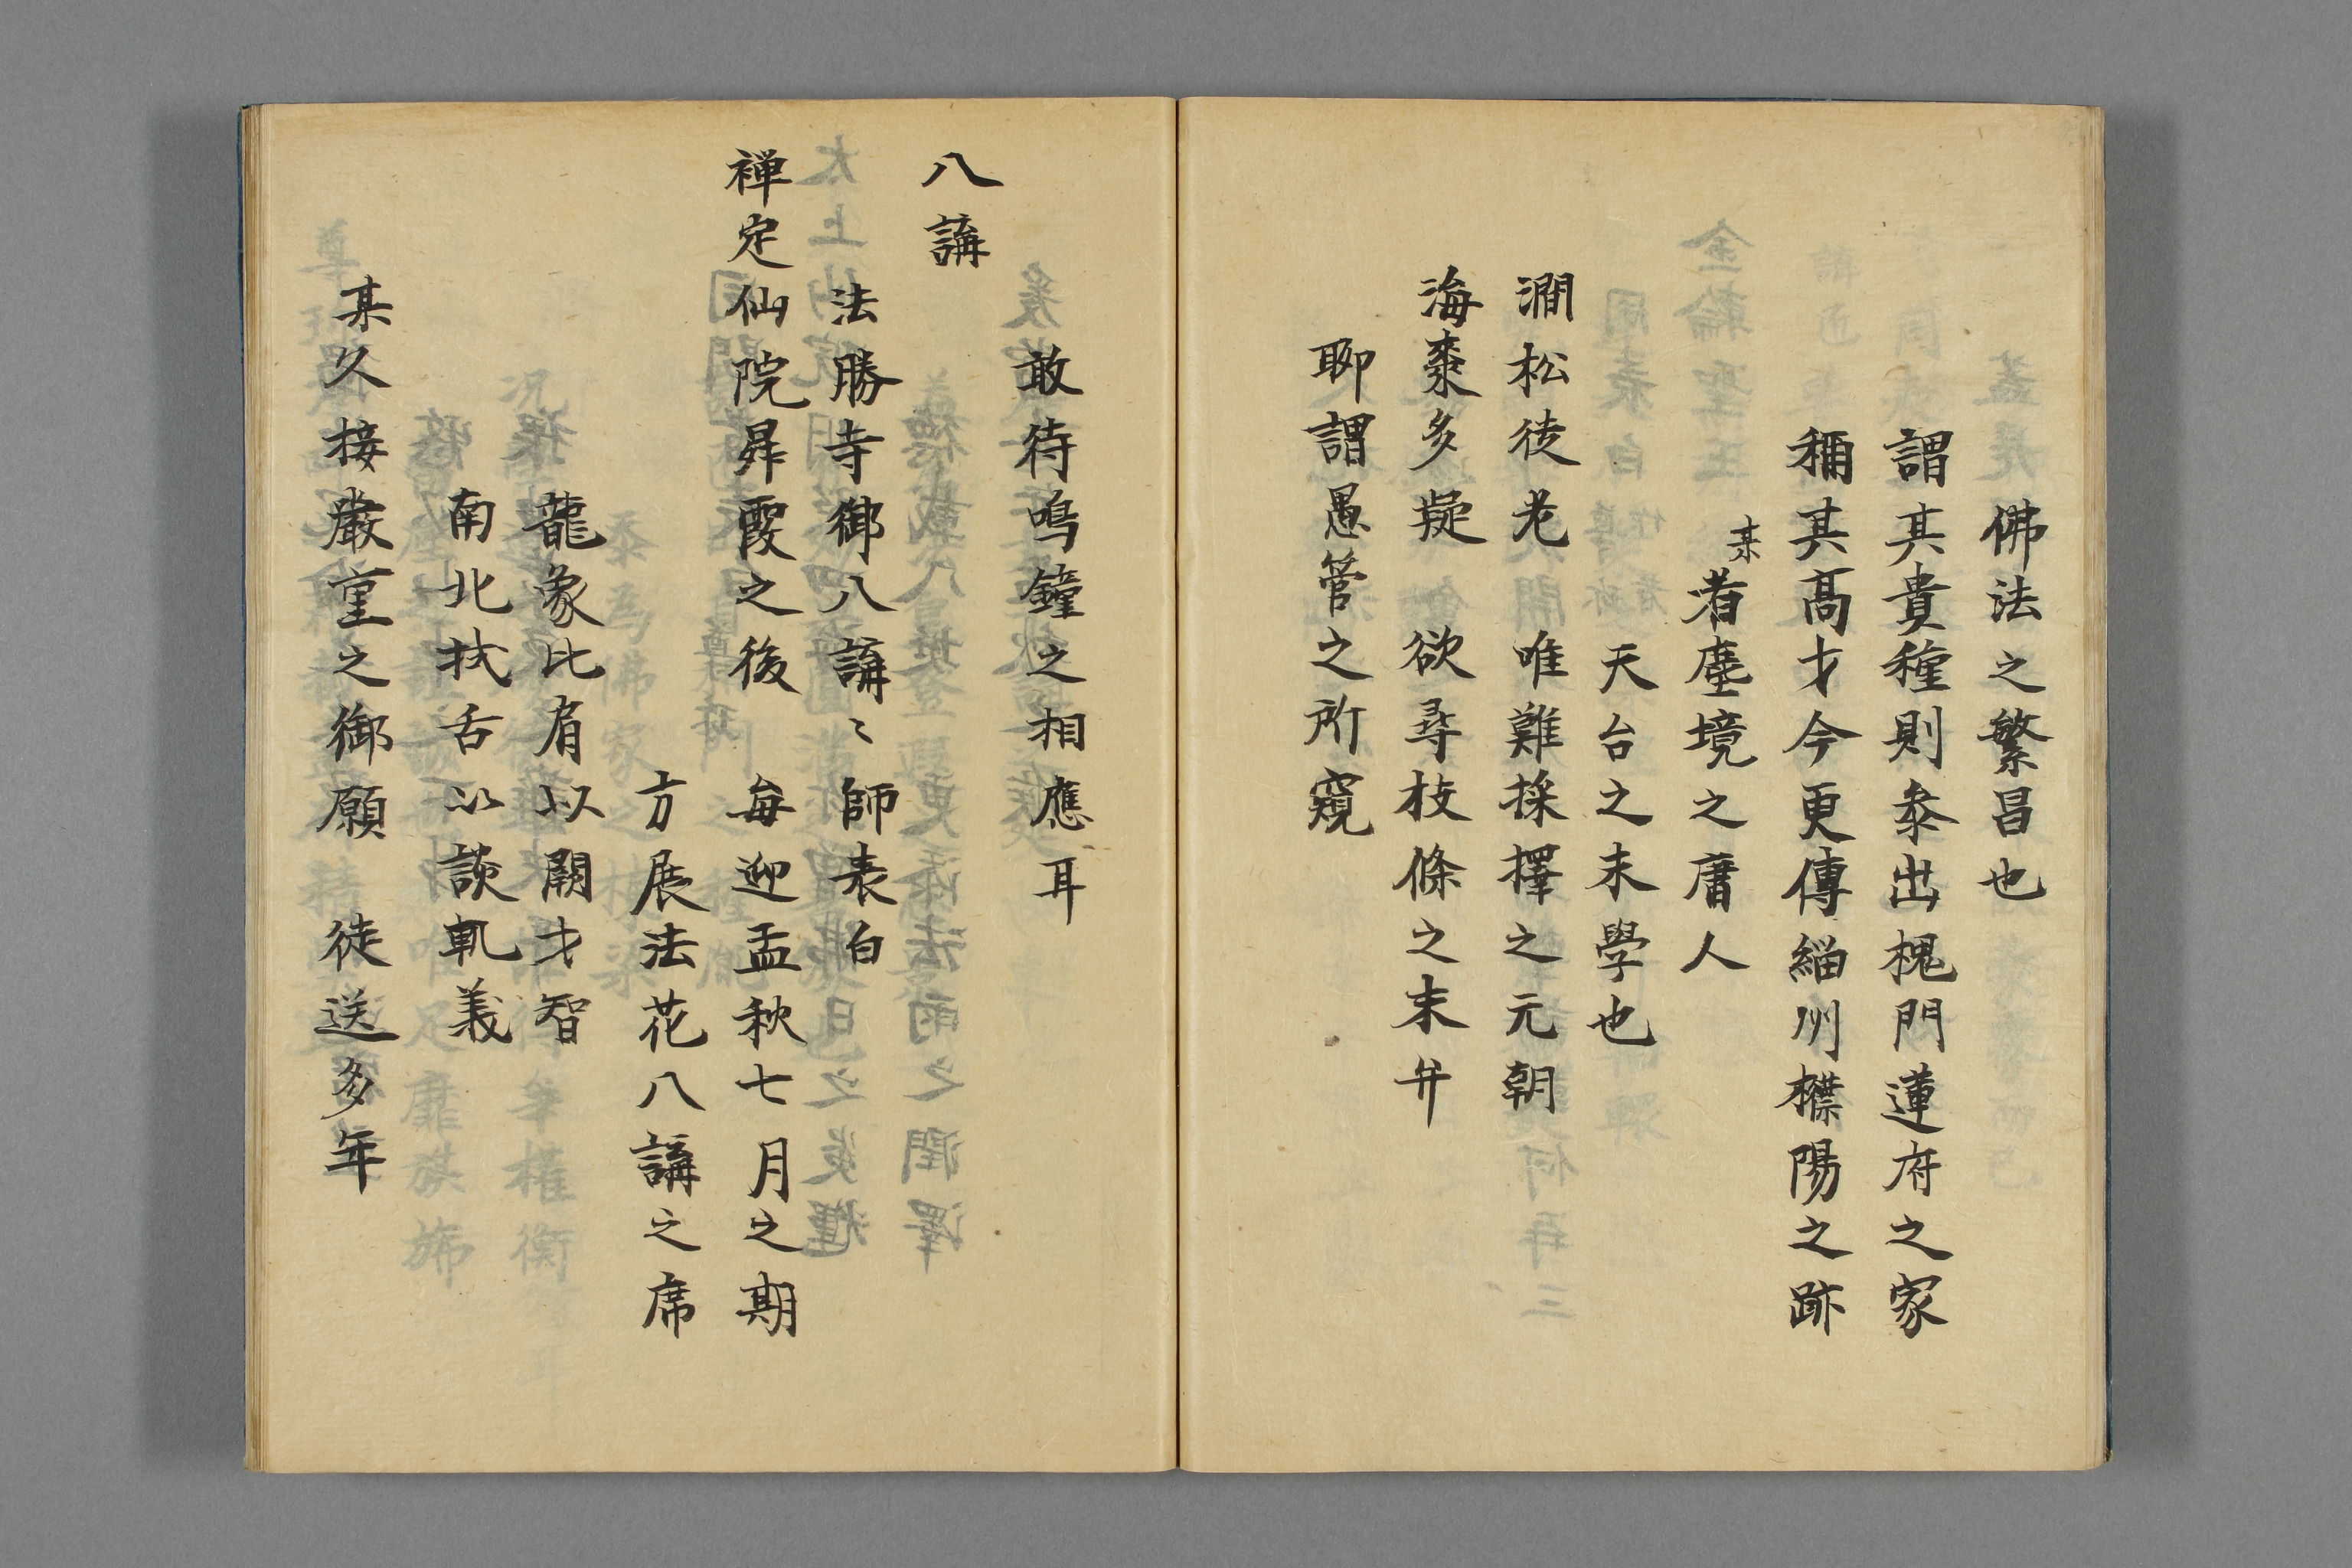 佛法之繁昌也
謂其貴種則忝出槐門蓮府之家
稱其高才今更傳緇州襟陽之跡
某者塵境之庸人
天台之末學也
澗松徒老 唯難採擇之元朝
海棗多疑 欲尋枝條之末弁
聊謂愚管之所窺
敢待鳴鐘之相應耳
八講
法勝寺御八講〻師表白
禅定仙院昇霞之後 毎迎孟秋七月之期
方展法花八講之席
龍象比肩以闘才智
南北拭舌以談軌義
某久接嚴重之御願 徒送多年